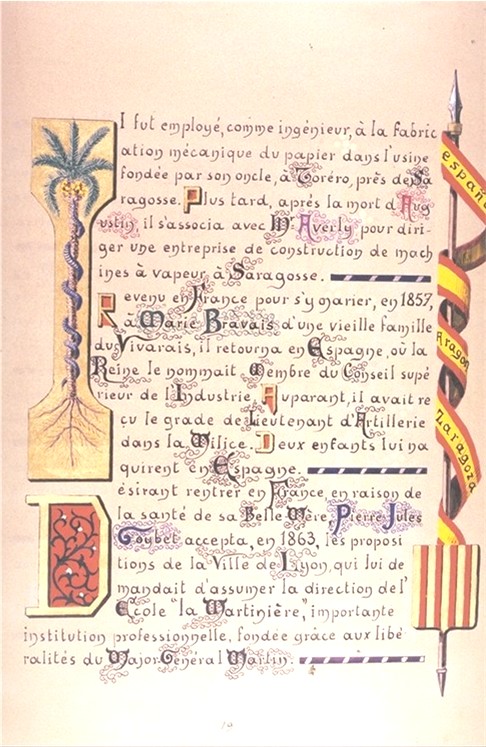 Il fut employé, comme ingénieur, à la fabric
ation mécanique du papier dans l'usine
fondée par son oncle, à Toréro, près de Sa
ragosse. Plus tard, après la mort d'Aug
ustin, il s'associa avec Mr Averly pour diri-
ger une entreprise de construction de mach
ines à vapeur, à Saragosse.
Revenu en France pour s'y marier, en 1857,
à Marie Bravais d'une vieille famille
du Vivarais, il retourna en Espagne, où la
Reine le nommait Membre du Conseil supé
rieur de l'Industrie. Auparant, il avait re
çu le grade de Lieutenant d'Artillerie
dans la Milice. Deux enfants lui na
quirent en Espagne.
Désirant rentrer en France, en raison de
la santé de sa Belle Mère, Pierre Jules
Goybet accepta, en 1863, les proposi
tions de la Ville de Lyon, qui lui de
mandait d'assumer la direction de l'
Ecole "la Martinière", importante
institution professionnelle, fondée grâce aux libé
ralités du Major Général Martin.
España
Aragon
Zaragoza